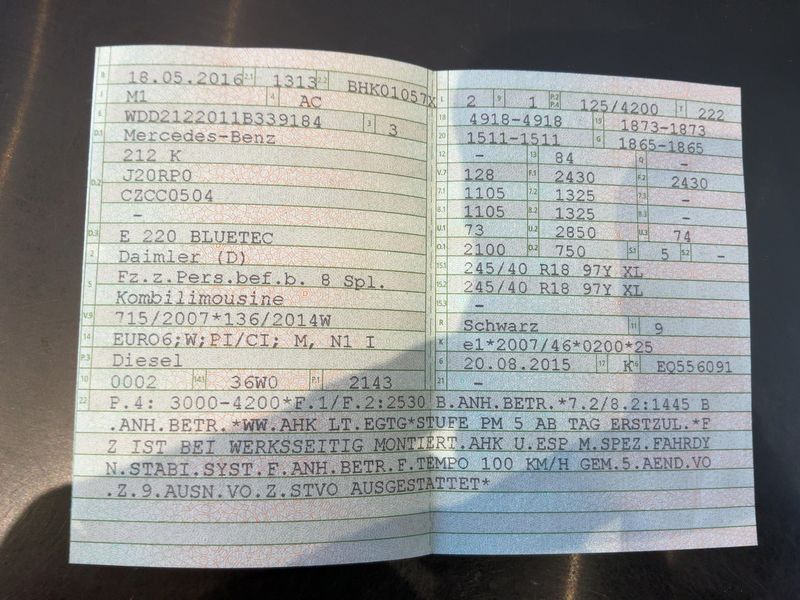 B 18.05.2016 2.1 1313 2.2 BHK01057X
J M1 4 AC
E WDD2122011B339184 3 3
D.1 Mercedes-Benz
212 K
D.2 J20RP0
CZCC0504
-
D.3 E 220 BLUETEC
2 Daimler (D)
5 Fz.z.Pers.bef.b. 8 Spl.
Kombilimousine
V.9 715/2007*136/2014W
14 EURO6;W;PI/CI; M, N1 I
P.3 Diesel
10 0002 14.1 36W0 P.1 2143
L 2 9 1 P.2 P.4 125/4200 T 222
18 4918-4918 19 1873-1873
20 1511-1511 G 1865-1865
12 - 13 84 Q -
V.7 128 F.1 2430 F.2 2430
7.1 1105 7.2 1325 7.3 -
8.1 1105 8.2 1325 8.3 -
U.1 73 U.2 2850 U.3 74
O.1 2100 O.2 750 S.1 5 S.2 -
15.1 245/40 R18 97Y XL
15.2 245/40 R18 97Y XL
15.3 -
R Schwarz 11 9
K e1*2007/46*0200*25
6 20.08.2015 17 K 16 EQ556091
21 -
22 P.4: 3000-4200*F.1/F.2:2530 B.ANH.BETR.*7.2/8.2:1445 B
.ANH.BETR.*WW.AHK LT.EGTG*STUFE PM 5 AB TAG ERSTZUL.*F
Z IST BEI WERKSSEITIG MONTIERT.AHK U.ESP M.SPEZ.FAHRDY
N.STABI.SYST.F.ANH.BETR.F.TEMPO 100 KM/H GEM.5.AEND.VO
.Z.9.AUSN.VO.Z.STVO AUSGESTATTET*